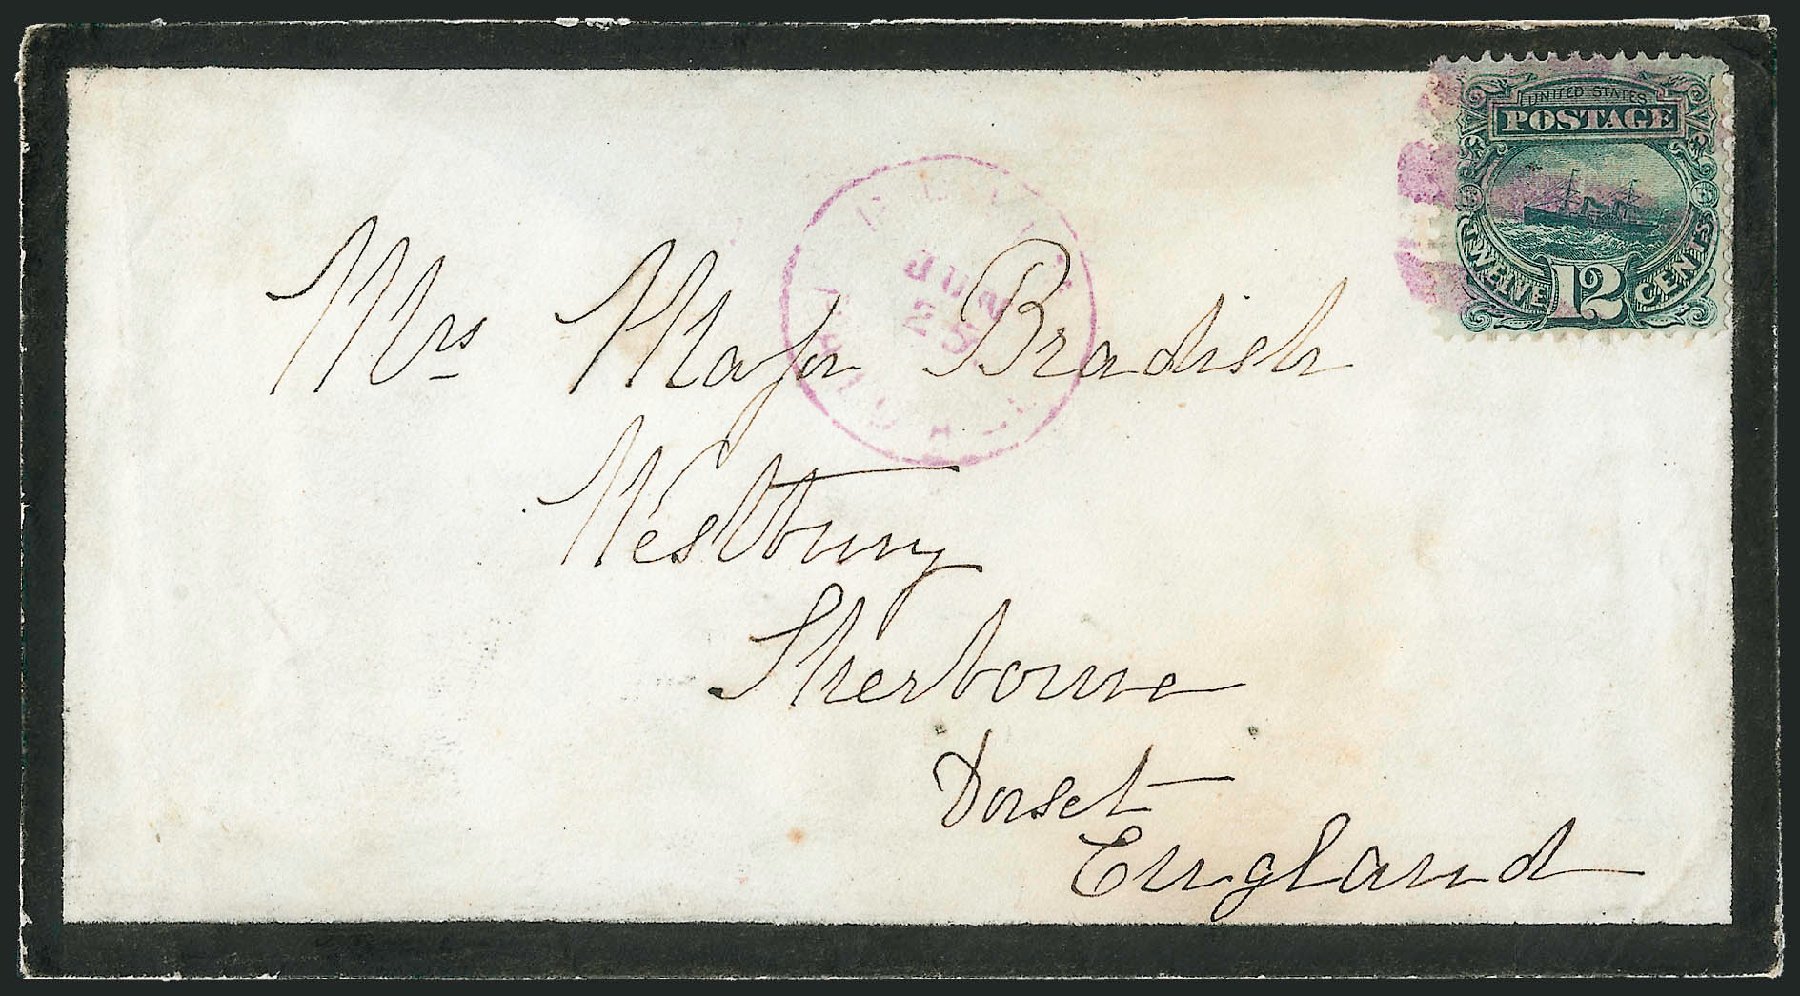 UNITED STATES
POSTAGE
TWELVE 12 CENTS
Mrs Major Bradish
Westbury
Sherborne
Dorset
England